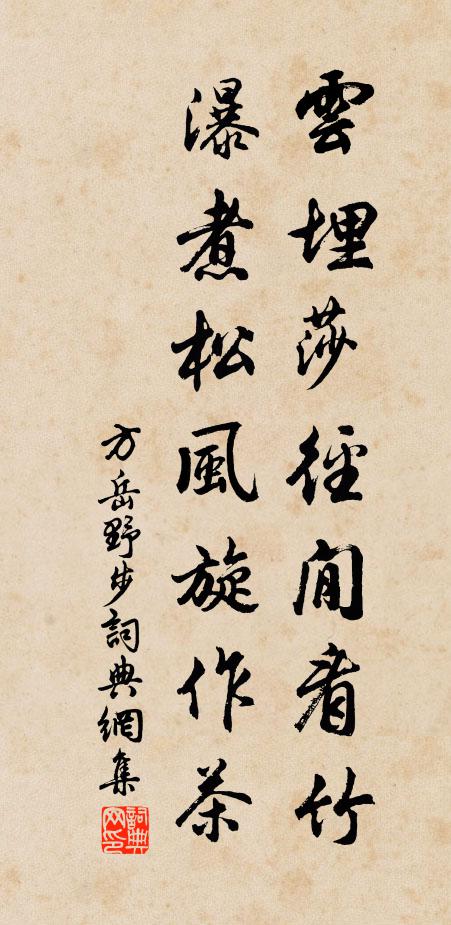 雲埋莎徑閒看竹
瀑煮松風旋作茶
方岳野步詞典網集
詞典網印